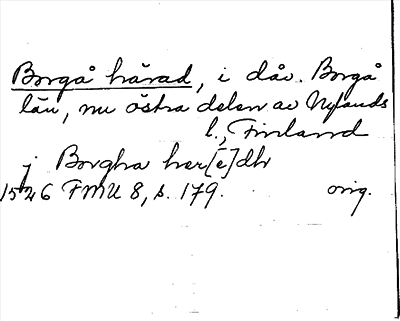 Borgå härad, i dåv. Borgå
län, nu östra delen av Nylands
l., Finland
j Borgha her[é]dh
1526 FMU 8, s. 179. orig.